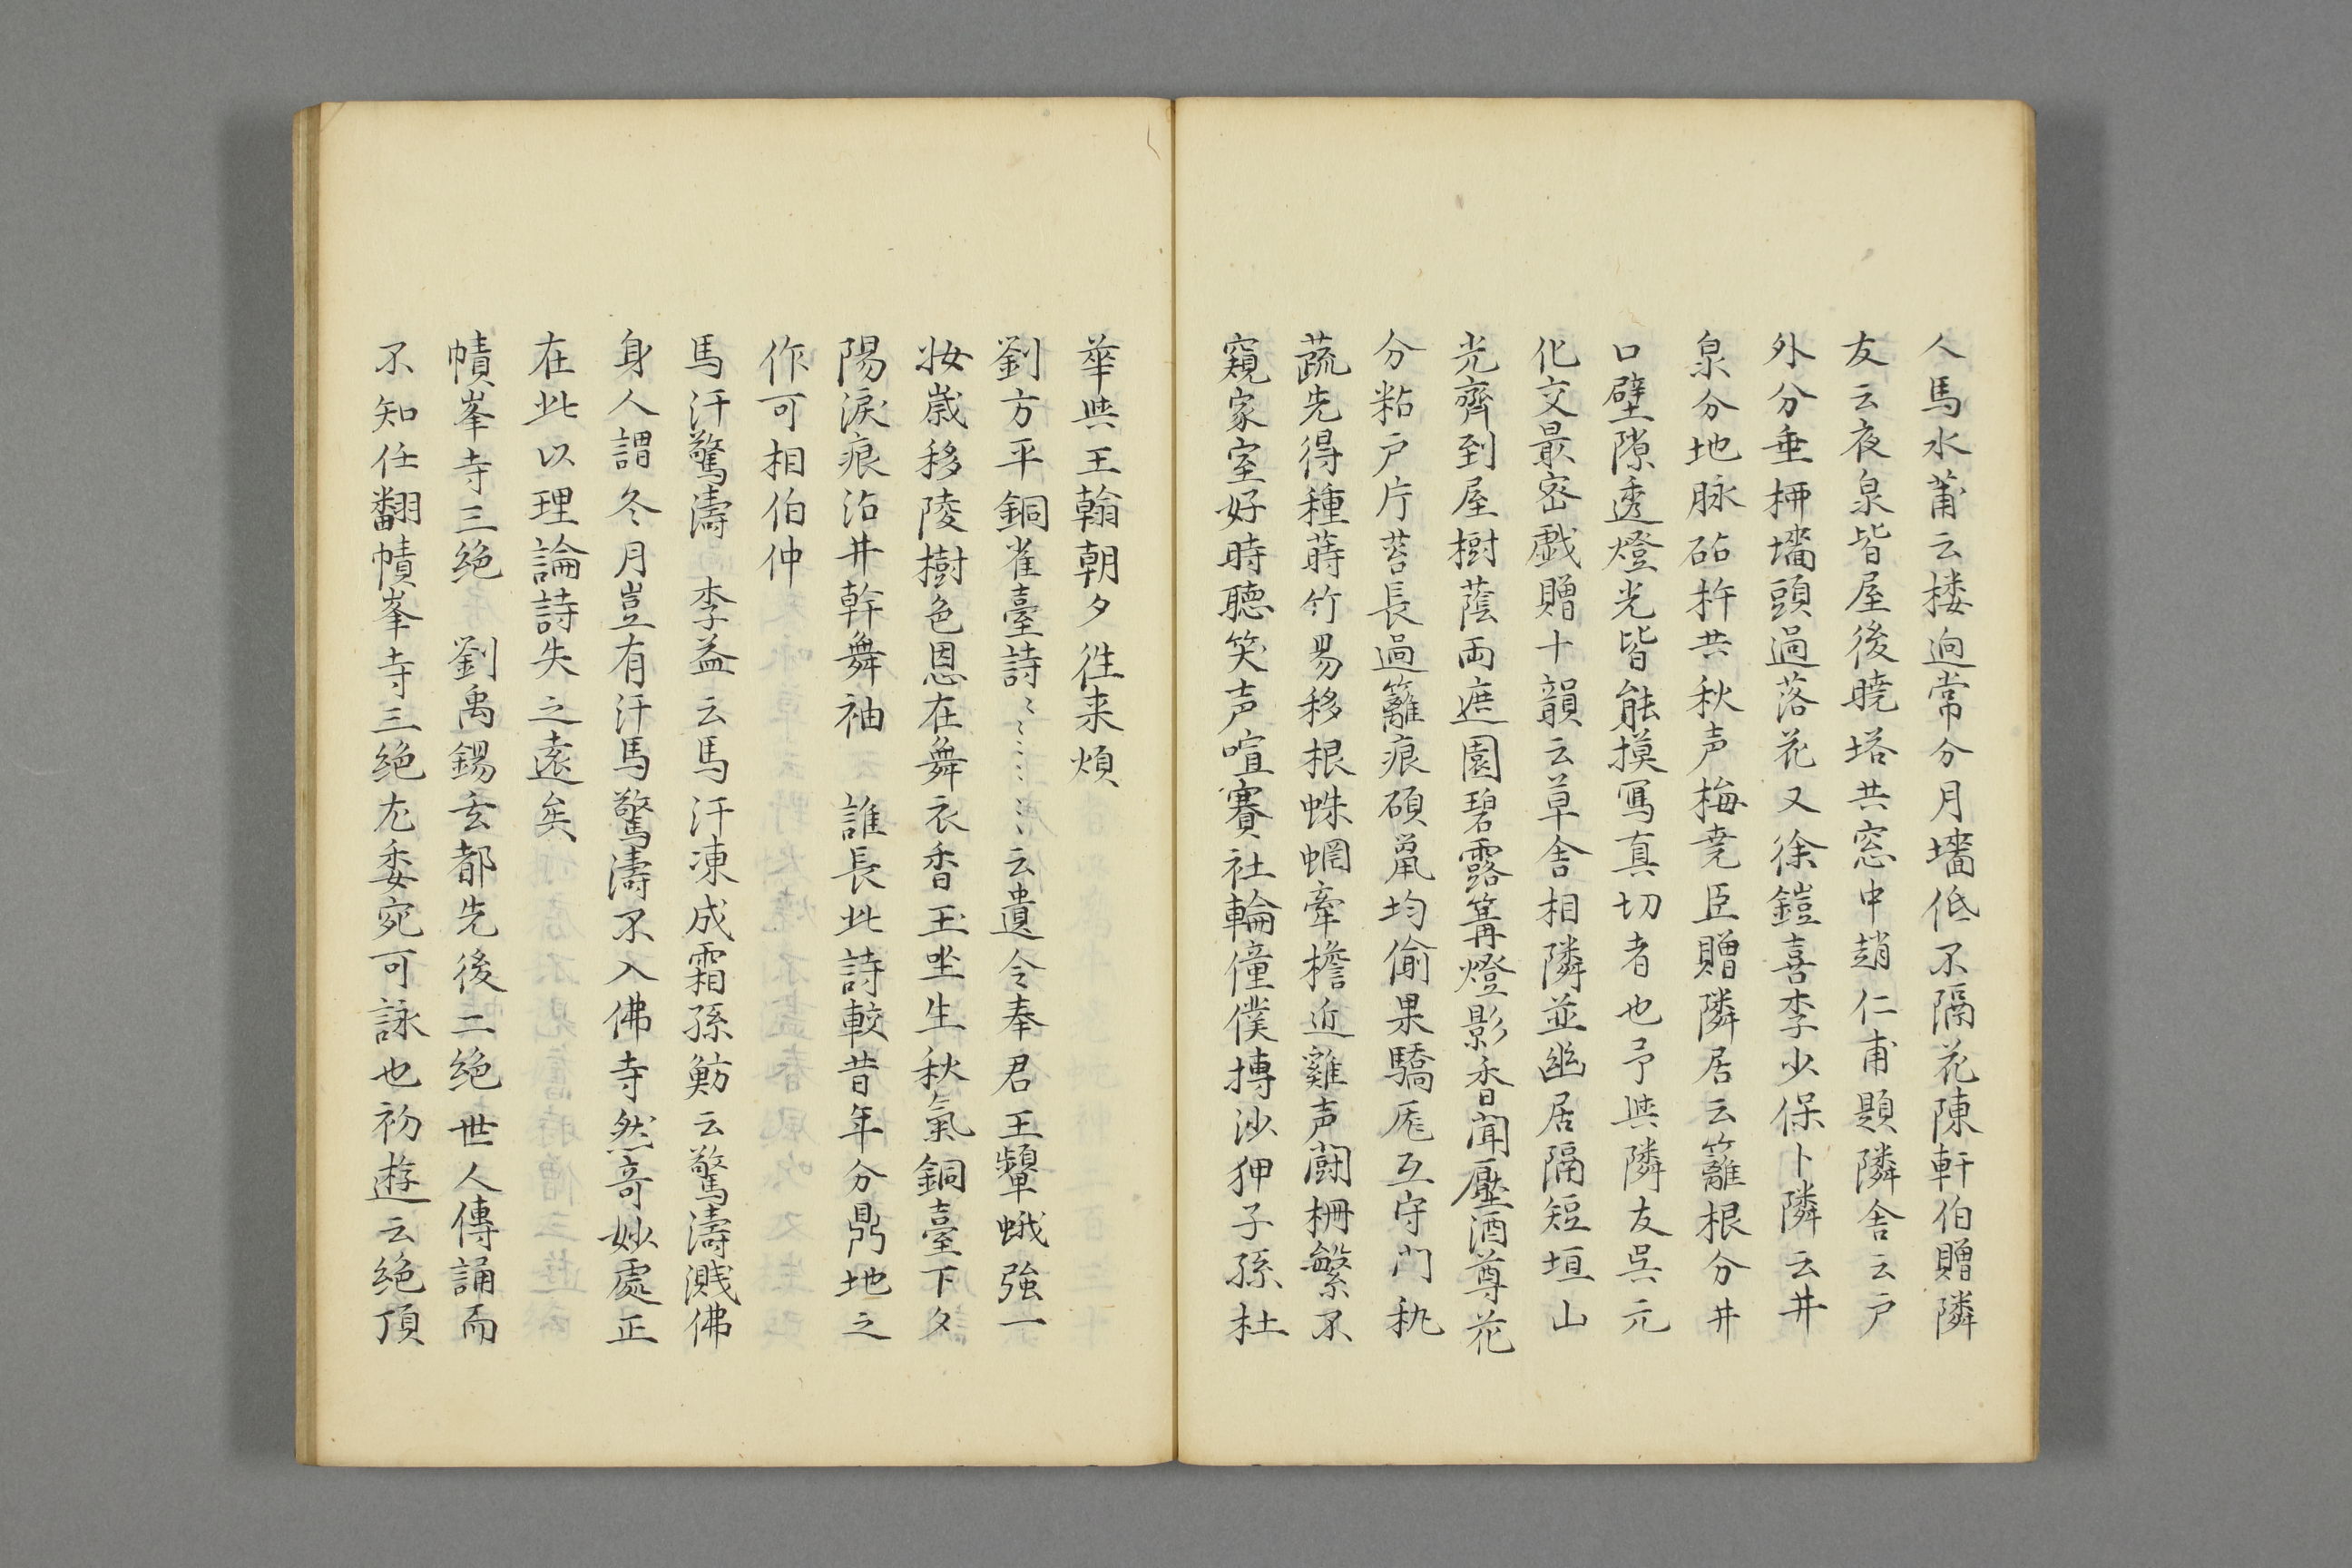 人馬水莆云楼逈常分月墻低不隔花陳軒伯贈隣
友云夜泉皆屋後曉塔共窓中趙仁甫題隣舎云戸
外分垂柳墻頭過落花又徐鎧喜李少保卜隣云井
泉分地脉砧杵共秋声梅尭臣贈隣居云籬根分井
口壁隙透燈光皆能摸寫真切者也予與隣友呉元
化交最密戯贈十韻云草舎相隣並幽居隔短垣山
光齊到屋樹蔭両遮園碧露篝燈影香聞壓酒尊花
分粘戸片苔長過籬痕碩鼠均偷果驕尨互守門秇
蔬先得種蒔竹易移根蛛網牽檐近雞声闘柵繁不
窺家室好時聽笑声喧賽社輪僮僕摶沙狎子孫杜
華與王翰朝夕徃来煩
劉方平銅雀臺詩云遺令奉君王顰蛾強一
妝歳移陵樹色恩在舞衣香玉坐生秋氣銅臺下夕
陽淚痕沾井幹舞袖　誰長此詩較昔年分鼎地之
作可相伯仲
馬汗驚濤　李益云馬汗凍成霜孫魴云驚濤濺佛
身人謂冬月豈有汗馬驚濤不入佛寺然竒妙處正
在此以理論詩失之遠矣
幘峯寺三絶　劉禹錫玄都先後二絶世人傳誦而
不知任翻幘峯寺三絶尤委宛可詠也初遊云絶頂